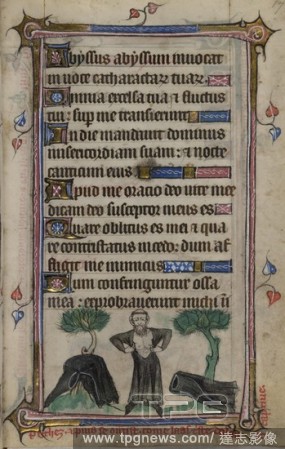 Abyssus abyssum invocat
in voce catharactar tuar
Omnia excelsa tua ⁊ fluctus
tui : sup me transierunt
In die mandavit dominus
misericordiam suam : ⁊ nocte
canticum eius
Apud me oracio deo vite mee
dicam deo susceptor meus es
Quare oblitus es mei ⁊ qua
re contristatus incedo : dum af
fligit me inimicus
Dum confringuntur ossa
mea : exprobraverunt michi
TPG
www.tpgnews.com / 達志影像